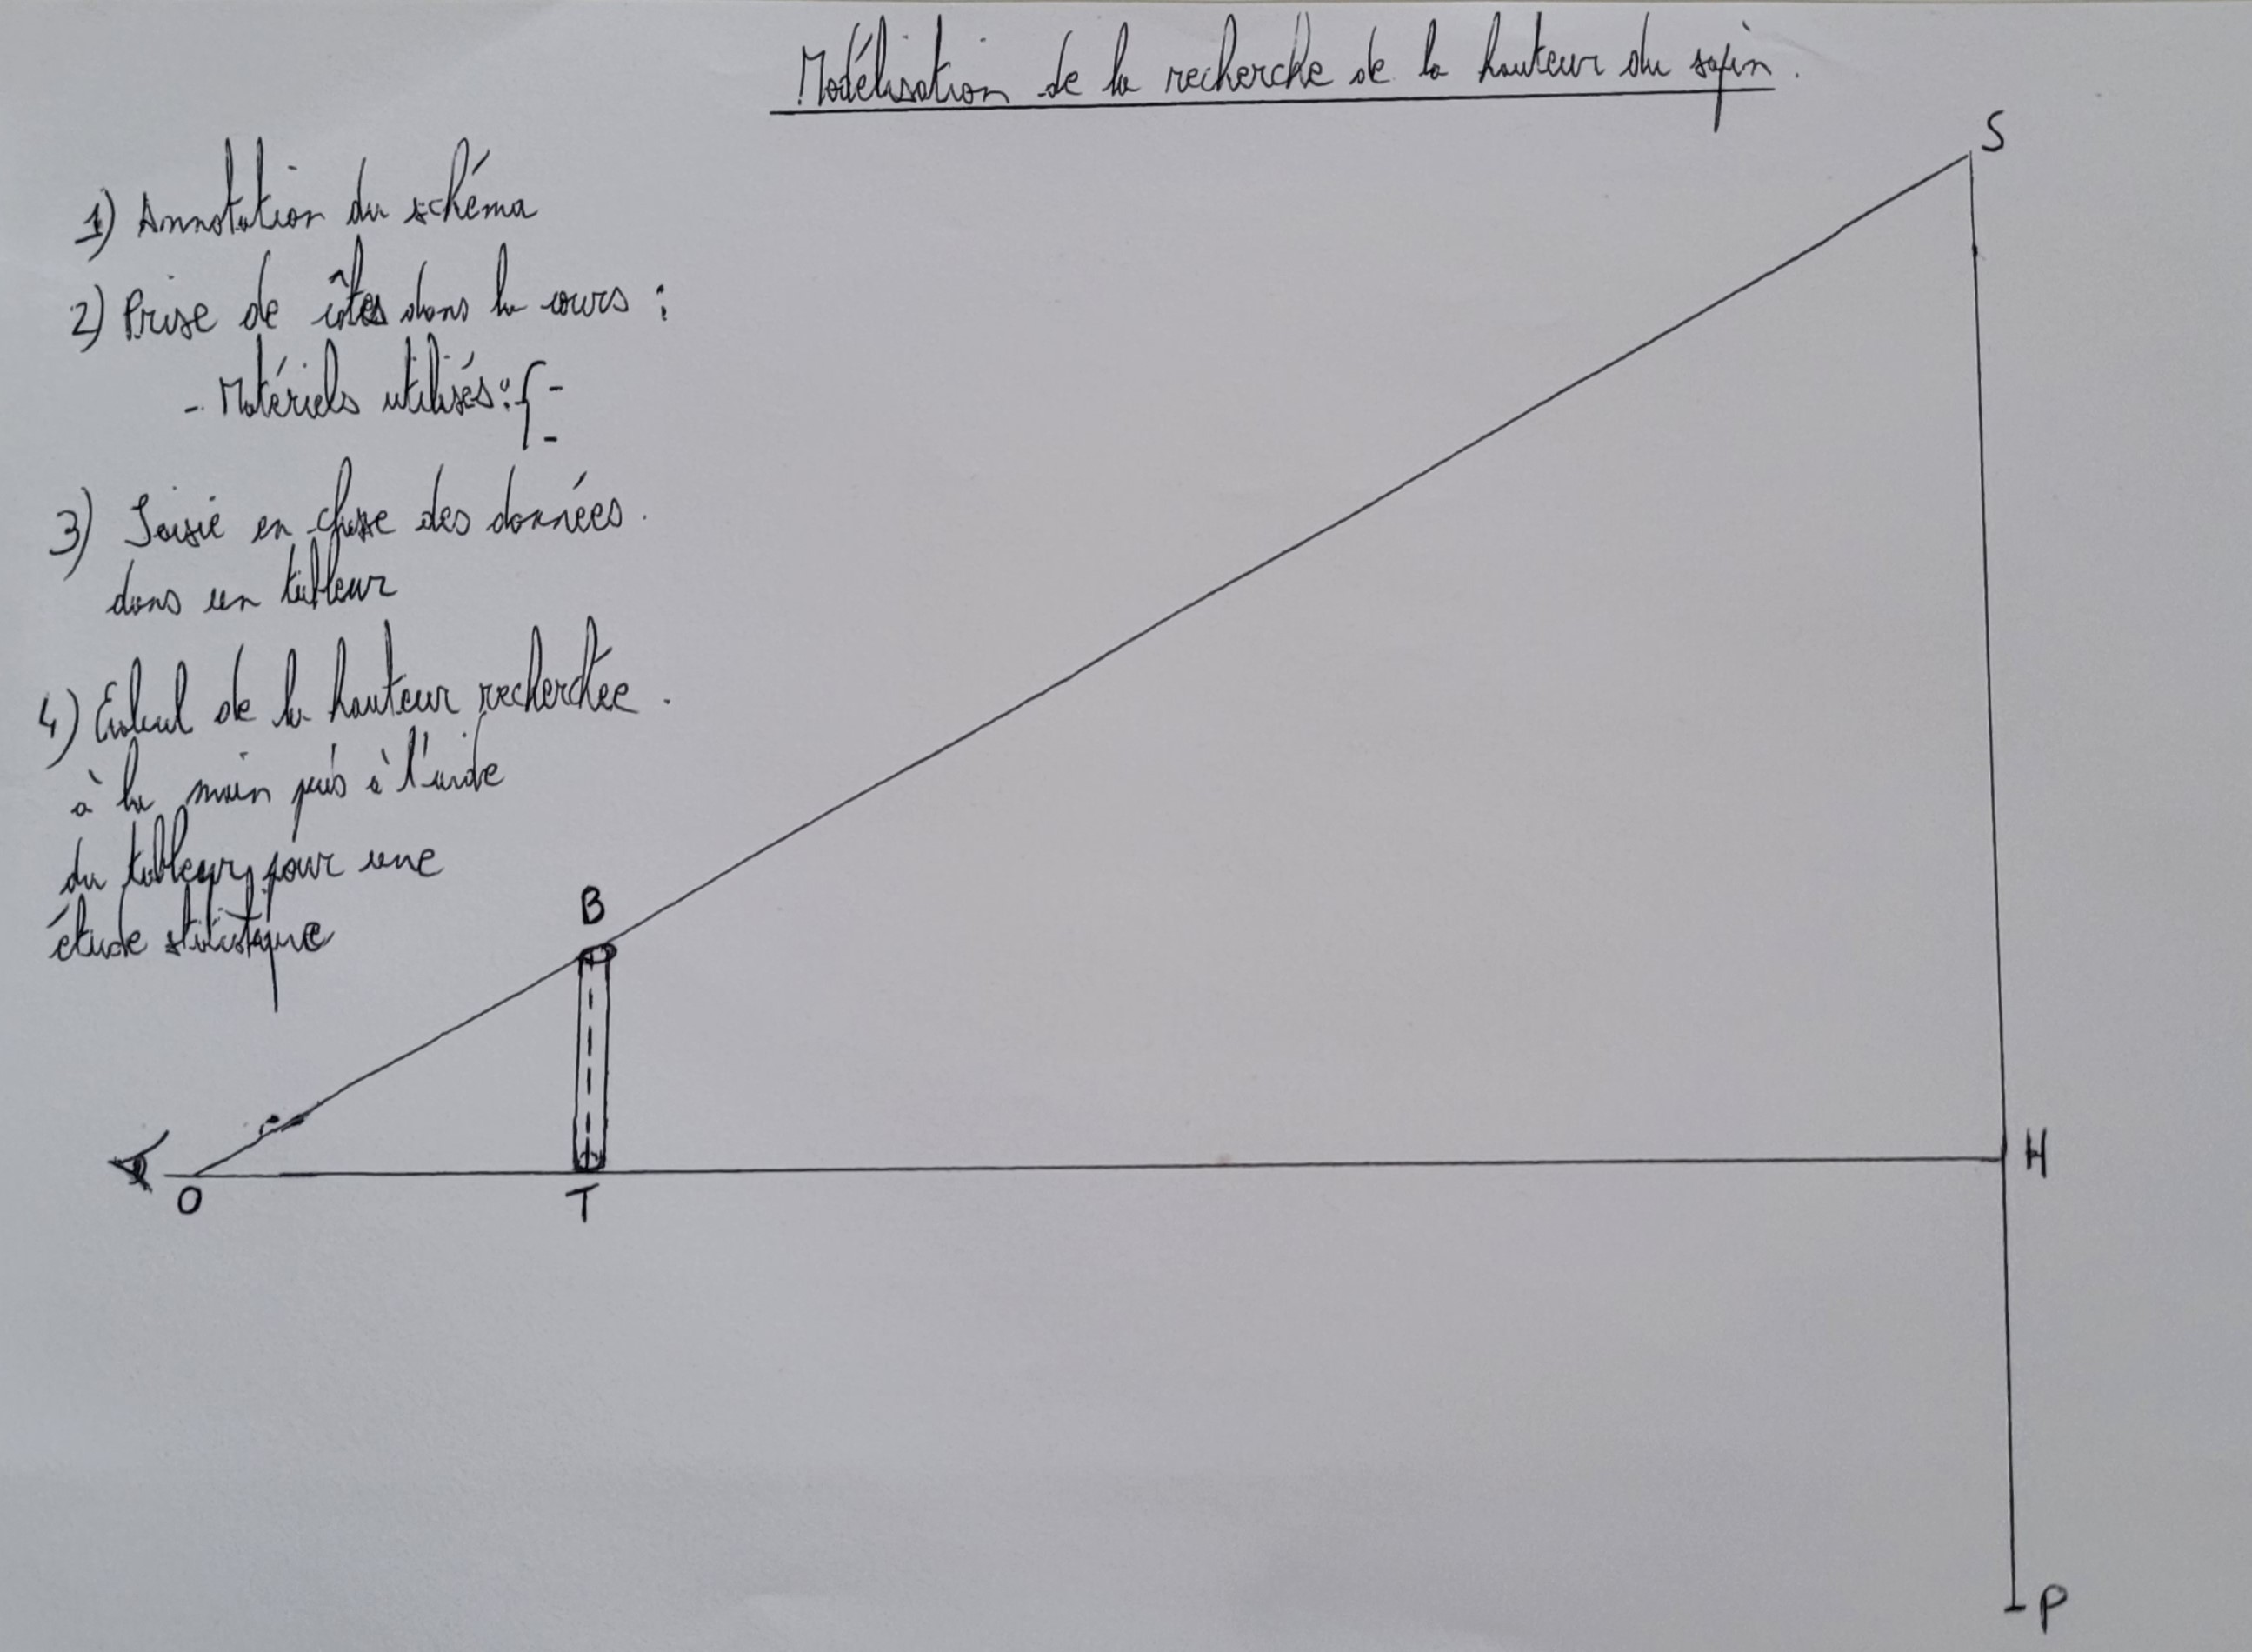 Modélisation de la recherche de la hauteur du sapin.
1) Annotation du schéma
2) Prise de côtes dans la cours :
- Matériels utilisés : { -
-
3) Saisie en classe des données.
dans un tableur
4) Calcul de la hauteur recherchée.
à la main puis à l'aide
du tableur pour une
étude statistique
S
B
H
O
T
P